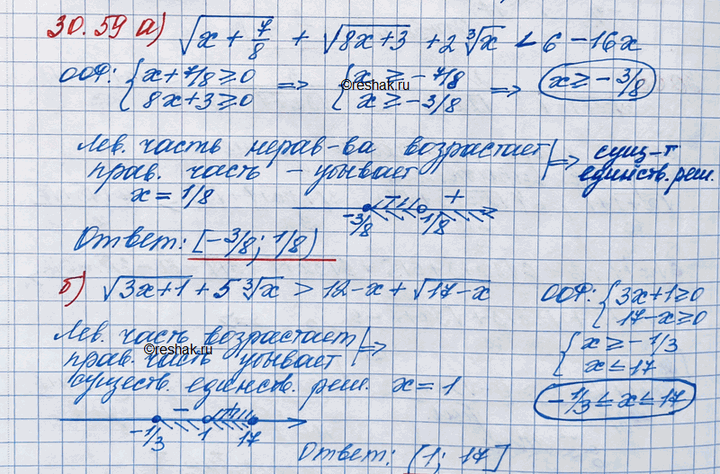 30.59 а) √(x + 7/8) + √(8x+3) + 2∛x < 6 − 16x
ООФ: { x + 7/8 ≥ 0 => { x ≥ −7/8 => x ≥ −3/8
8x+3 ≥ 0 x ≥ −3/8
©reshak.ru
Лев. часть нерав-ва возрастает | => сущ-т
прав. часть – убывает единств. реш.
x = 1/8
− +
−3/8 1/8
Ответ: [−3/8; 1/8)
б) √(3x+1) + 5∛x > 12−x + √(17−x) ООФ: { 3x+1 ≥ 0
17−x ≥ 0
Лев. часть возрастает | => { x ≥ −1/3
©reshak.ru
прав. часть убывает x ≤ 17
существ. единств. реш. x = 1 −1/3 ≤ x ≤ 17
− +
−1/3 1 17
Ответ: (1; 17]